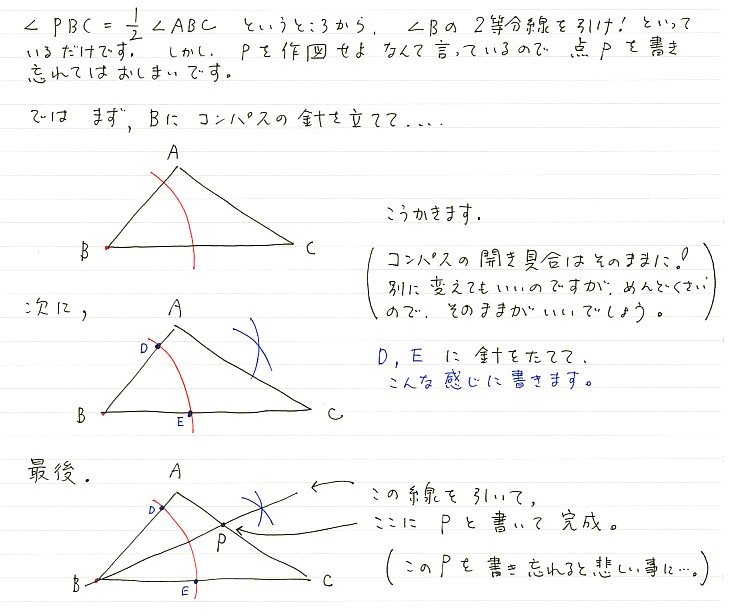 ∠PBC = 1/2 ∠ABC というところから、∠Bの2等分線を引け！といって
いるだけです。しかし、Pを作図せよなんて言っているので点Pを書き
忘れてはおしまいです。
では まず, Bに コンパスの針を立てて....
A
B
C
こうかきます.
(コンパスの開き具合はそのままに!
別に変えてもいいのですが、めんどくさい
ので、そのままがいいでしょう。)
次に,
A
D
B
E
C
D, E に針をたてて、
こんな感じに書きます。
最後.
A
D
P
B
E
C
この線を引いて,
ここに P と書いて 完成。
(このPを書き忘れると悲しい事に…。)